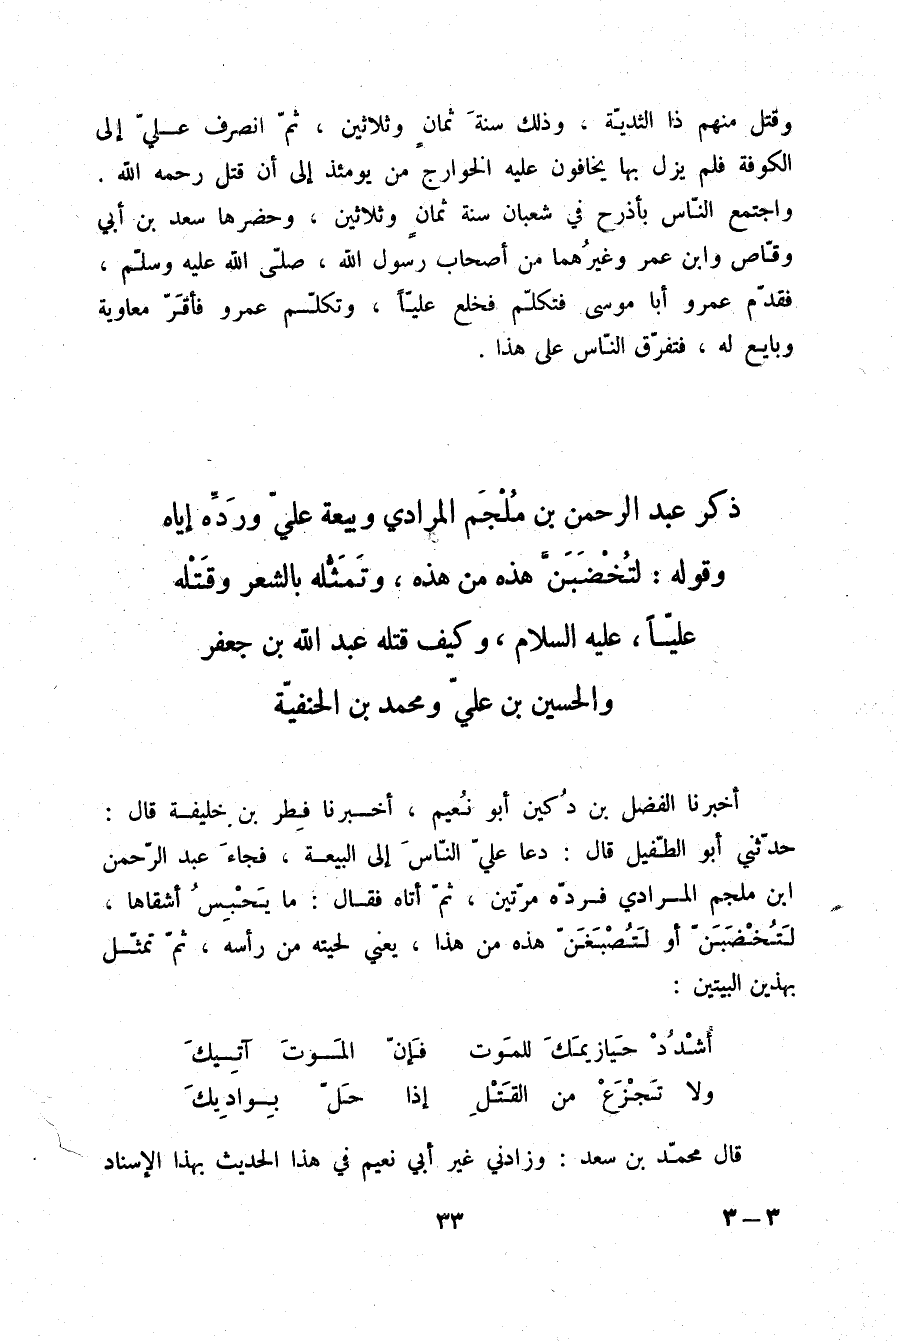 وقتل منهم ذا الثديّة ، وذلك سنةَ ثمانٍ وثلاثين ، ثمّ انصرف عليّ إلى
الكوفة فلم يزل بها يخافون عليه الخوارج من يومئذ إلى أن قتل رحمه الله .
واجتمع النّاس بأذرح في شعبان سنة ثمانٍ وثلاثين ، وحضرها سعد بن أبي
وقّاص وابن عمر وغيرُهما من أصحاب رسول الله ، صلّى الله عليه وسلّم ،
فقدّم عمرو أبا موسى فتكلّم فخلع عليّاً ، وتكلّم عمرو فأقَرّ معاوية
وبايع له ، فتفرّق النّاس على هذا .
ذكر عبد الرحمن بن مُلْجَم المرادي وبيعة عليّ وردَّه إياه
وقوله : لتُخْضَبَنَّ هذه من هذه ، وتَمَثُّله بالشعر وقَتْله
عليّاً ، عليه السلام ، وكيف قتله عبد الله بن جعفر
والحسين بن عليّ ومحمد بن الحنفيّة
أخبرنا الفضل بن دُكين أبو نُعيم ، أخبرنا فِطر بن خليفة قال :
حدّثني أبو الطّفيل قال : دعا عليّ النّاسَ إلى البيعة ، فجاءَ عبد الرّحمن
ابن ملجم المرادي فردّه مرّتين ، ثمّ أتاه فقال : ما يَحْبِسُ أشقاها ،
لَتُخْضَبَنّ أو لَتُصْبَغَنّ هذه من هذا ، يعني لحيته من رأسه ، ثمّ تمثّل
بهذين البيتين :
أُشْدُدْ حَيَازيمَكَ للمَوت فَإنّ المَوتَ آتِيكَ
ولا تَجْزَعْ من القَتْلِ إذا حَلّ بِوادِيكَ
قال محمّد بن سعد : وزادني غير أبي نعيم في هذا الحديث بهذا الإسناد
٣ – ٣
٣٣